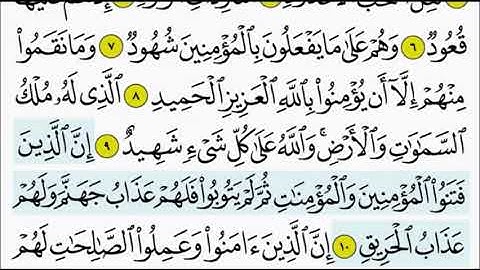 قُعُودٌ ٦ وَهُمْ عَلَىٰ مَا يَفْعَلُونَ بِٱلْمُؤْمِنِينَ شُهُودٌ ٧ وَمَا نَقَمُوا۟
مِنْهُمْ إِلَّآ أَن يُؤْمِنُوا۟ بِٱللَّهِ ٱلْعَزِيزِ ٱلْحَمِيدِ ٨ ٱلَّذِى لَهُۥ مُلْكُ
ٱلسَّمَٰوَٰتِ وَٱلْأَرْضِ ۚ وَٱللَّهُ عَلَىٰ كُلِّ شَىْءٍ شَهِيدٌ ٩ إِنَّ ٱلَّذِينَ
فَتَنُوا۟ ٱلْمُؤْمِنِينَ وَٱلْمُؤْمِنَٰتِ ثُمَّ لَمْ يَتُوبُوا۟ فَلَهُمْ عَذَابُ جَهَنَّمَ وَلَهُمْ
عَذَابُ ٱلْحَرِيقِ ١٠ إِنَّ ٱلَّذِينَ ءَامَنُوا۟ وَعَمِلُوا۟ ٱلصَّٰلِحَٰتِ لَهُمْ